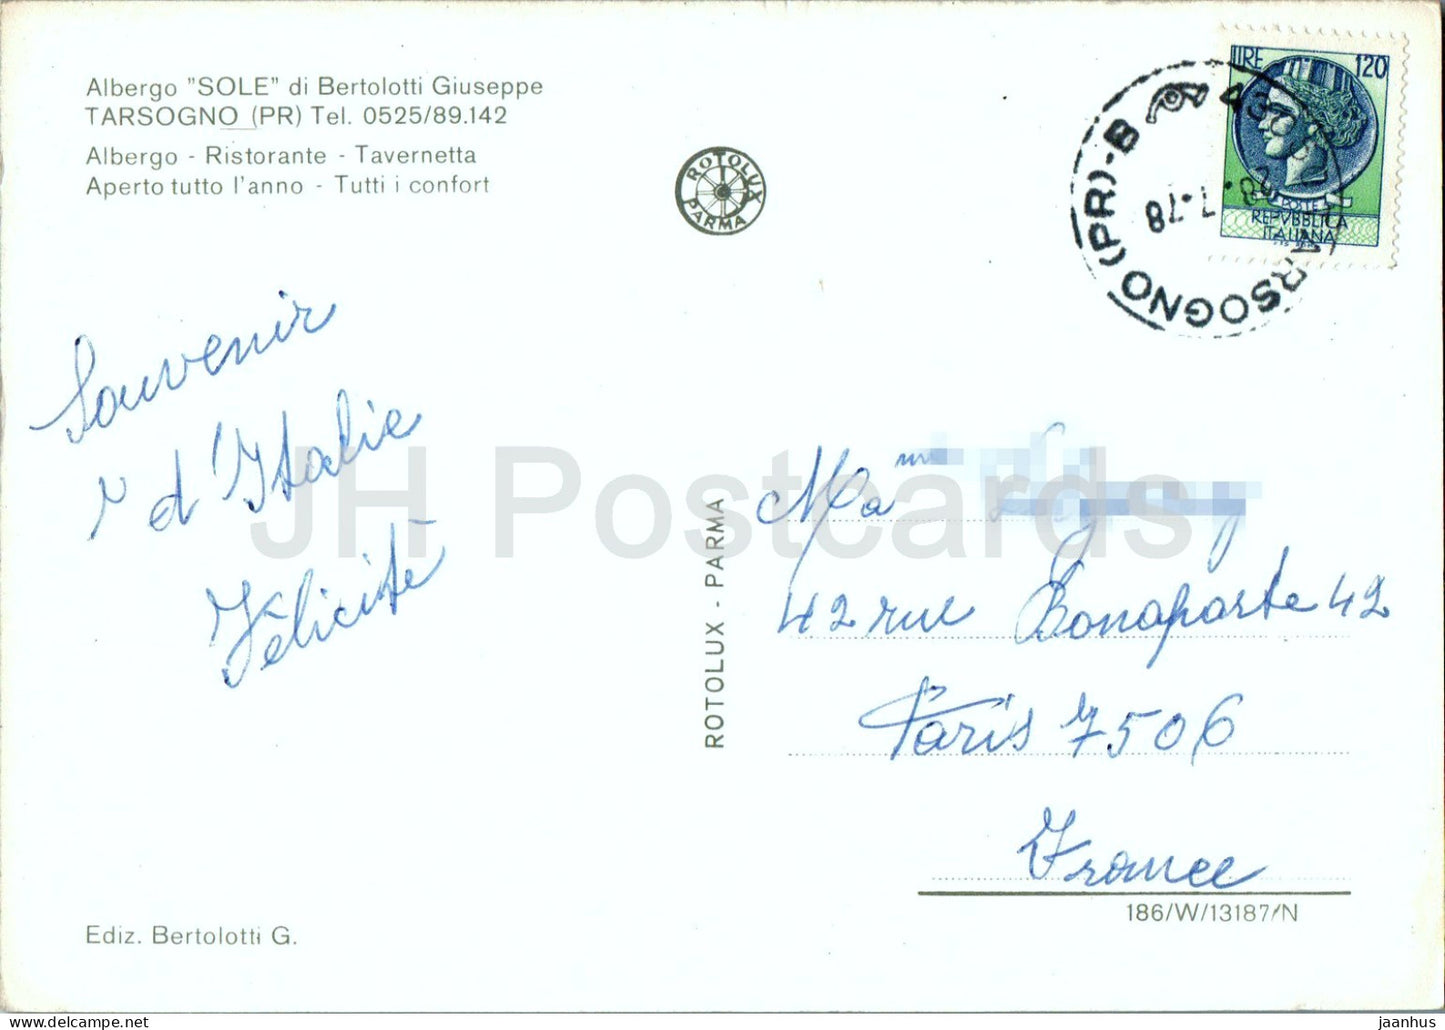 Albergo "SOLE" di Bertolotti Giuseppe
TARSOGNO (PR) Tel. 0525/89.142
Albergo - Ristorante - Tavernetta
Aperto tutto l'anno - Tutti i confort
ROTOLUX
PARMA
LIRE 120
POSTE
REPVBBLICA
ITALIANA
TARSOGNO (PR) - B
-7-78
Souvenir
d'Italie
Félicité
JH Postcards
ROTOLUX - PARMA
Ma
42 rue Bonaparte 42
Paris 7506
France
186/W/13187/N
Ediz. Bertolotti G.
https://www.ebay.com/usr/justhol
jaanhus